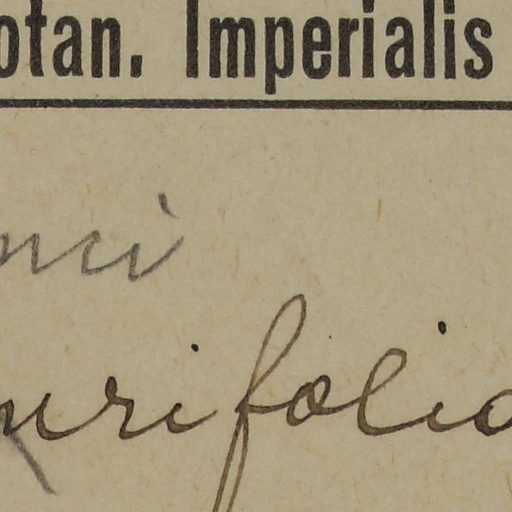 otan. Imperialis
nci
urifolia